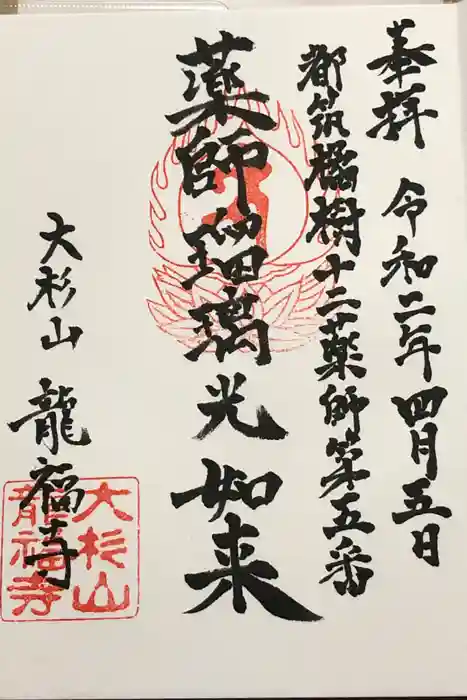 奉拝 令和二年四月五日
都筑橘樹十二薬師第五番
薬師瑠璃光如来
大杉山 龍福寺
大杉山
龍福寺